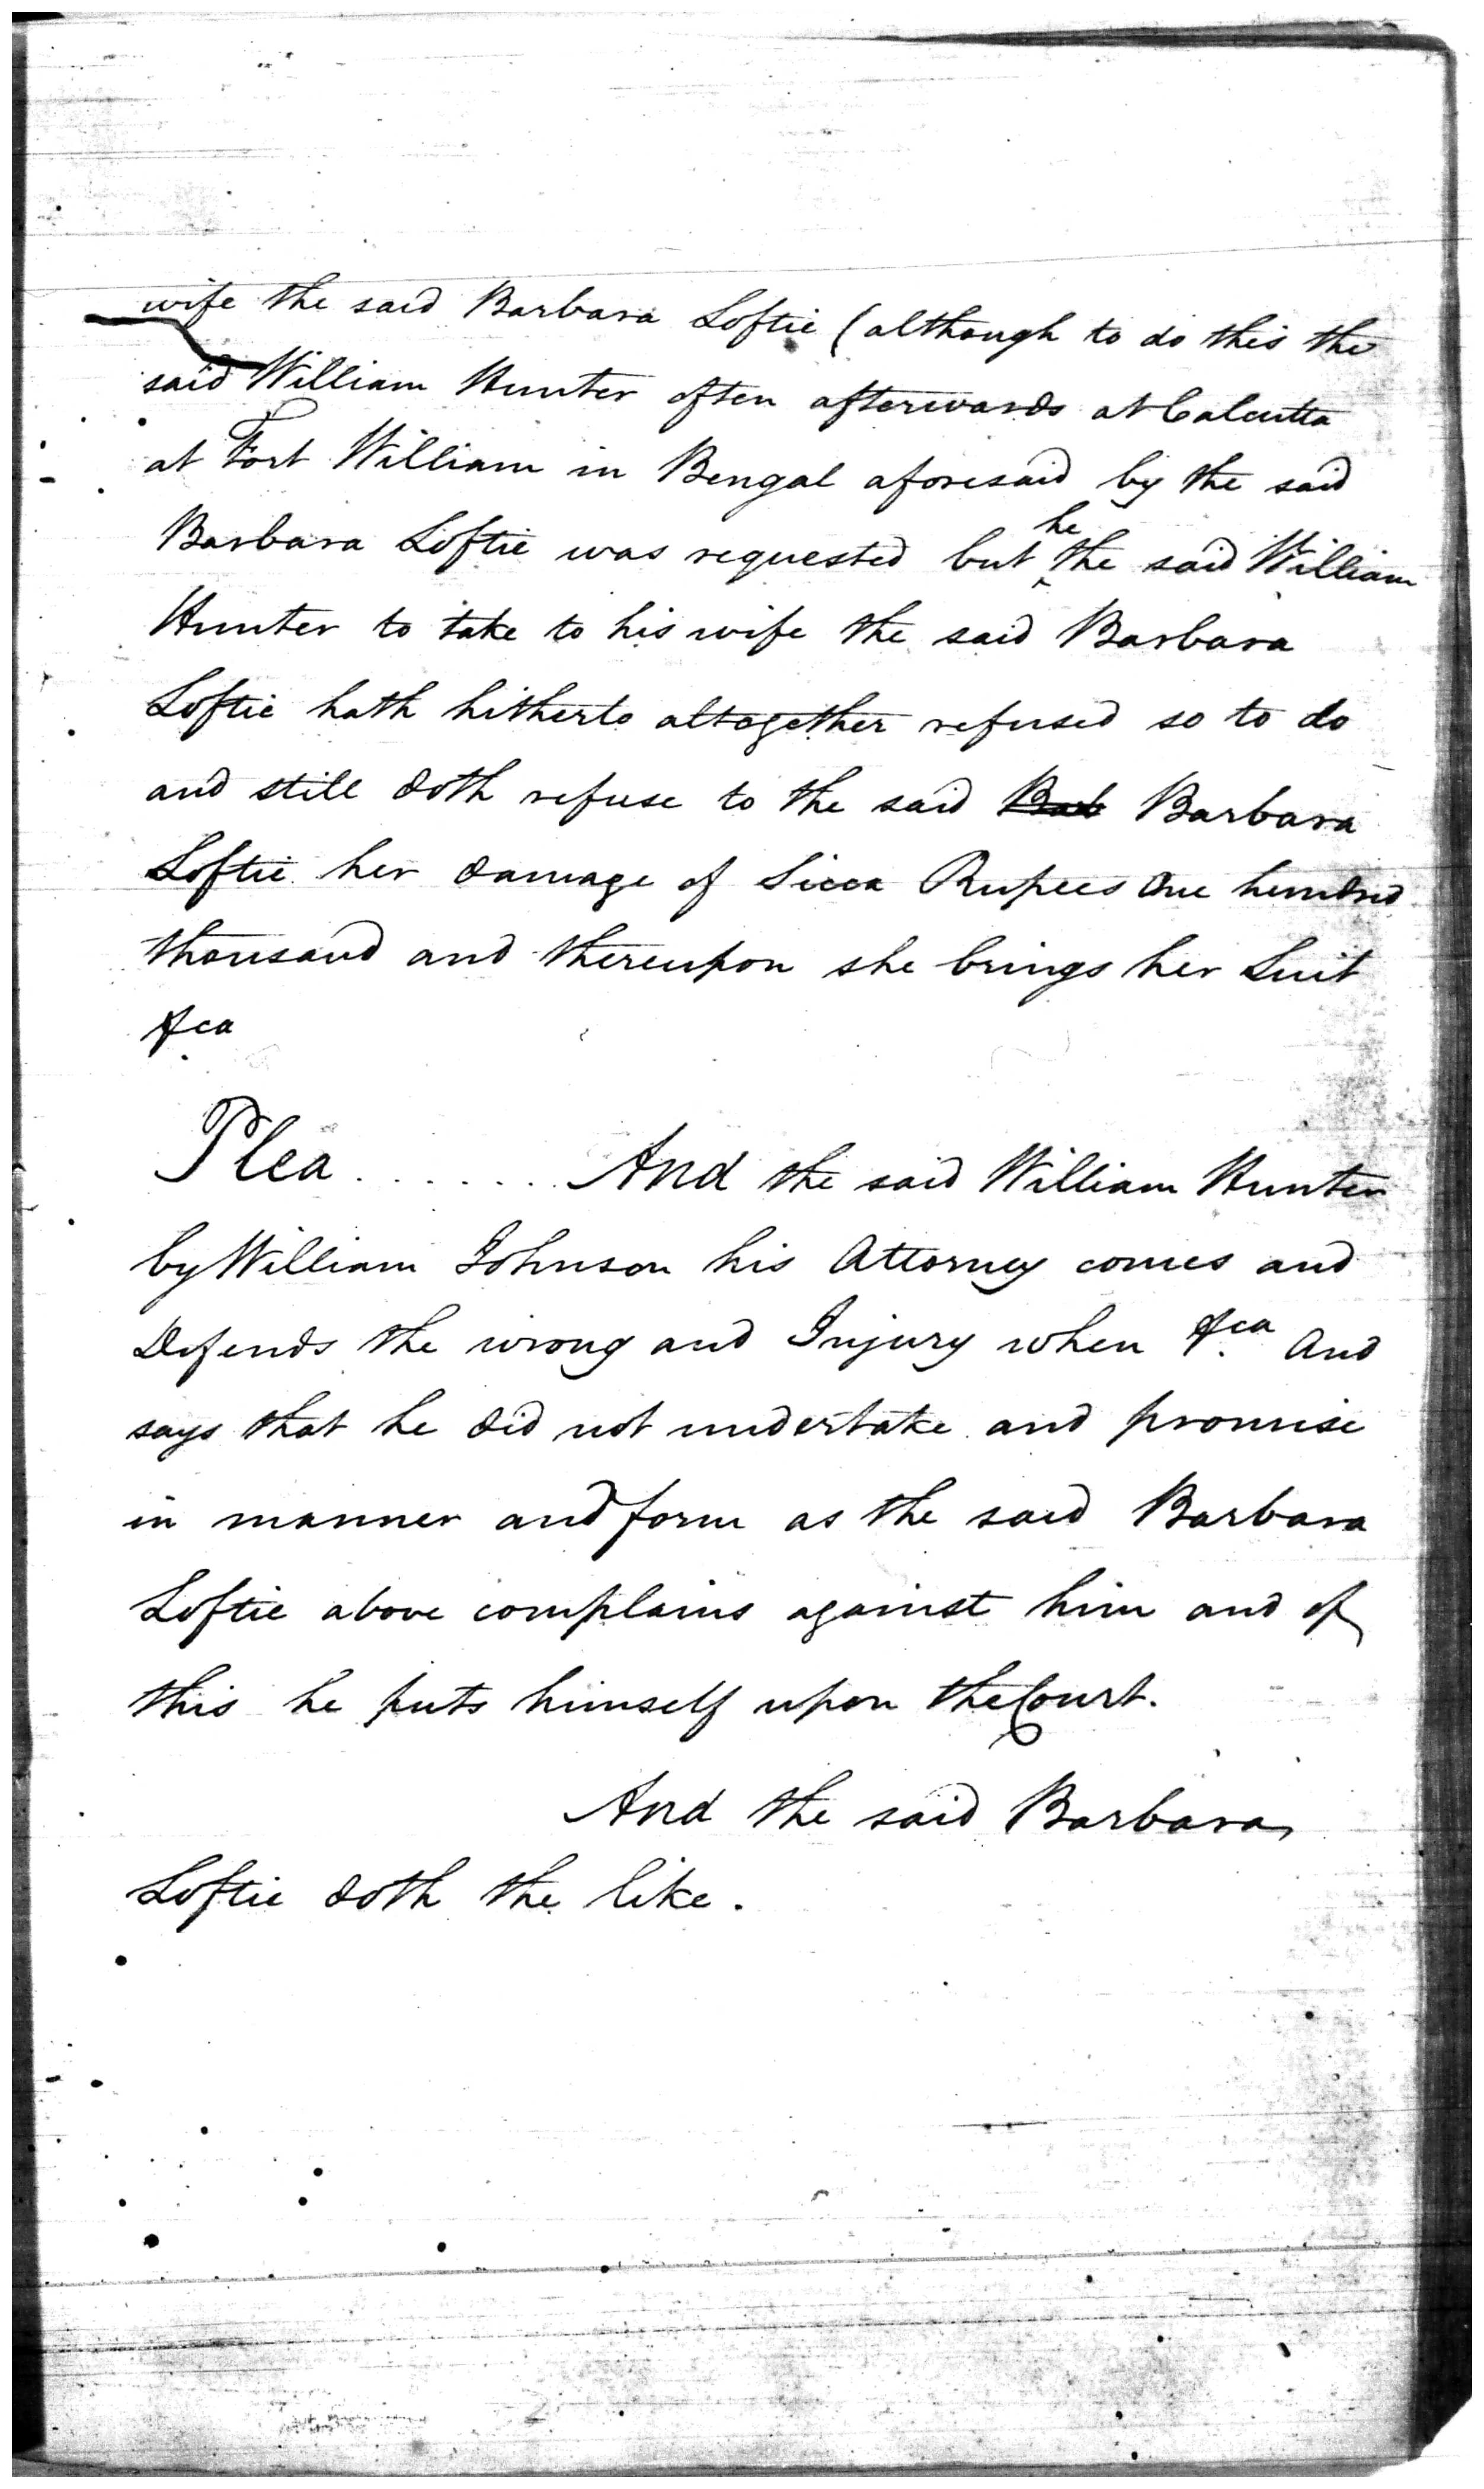 wife the said Barbara Loftie (although to do this the
said William Hunter often afterwards at Calcutta
at Fort William in Bengal aforesaid by the said
Barbara Loftie was requested but he the said William
Hunter to take to his wife the said Barbara
Loftie hath hitherto altogether refused so to do
and still doth refuse to the said Bab Barbara
Loftie her damage of Sicca Rupees One hundred
thousand and thereupon she brings her Suit
&ca
Plea ....... And the said William Hunter
by William Johnson his Attorney comes and
Defends the wrong and Injury when &ca And
says that he did not undertake and promise
in manner and form as the said Barbara
Loftie above complains against him and of
this he puts himself upon the Court.
And the said Barbara
Loftie doth the like.